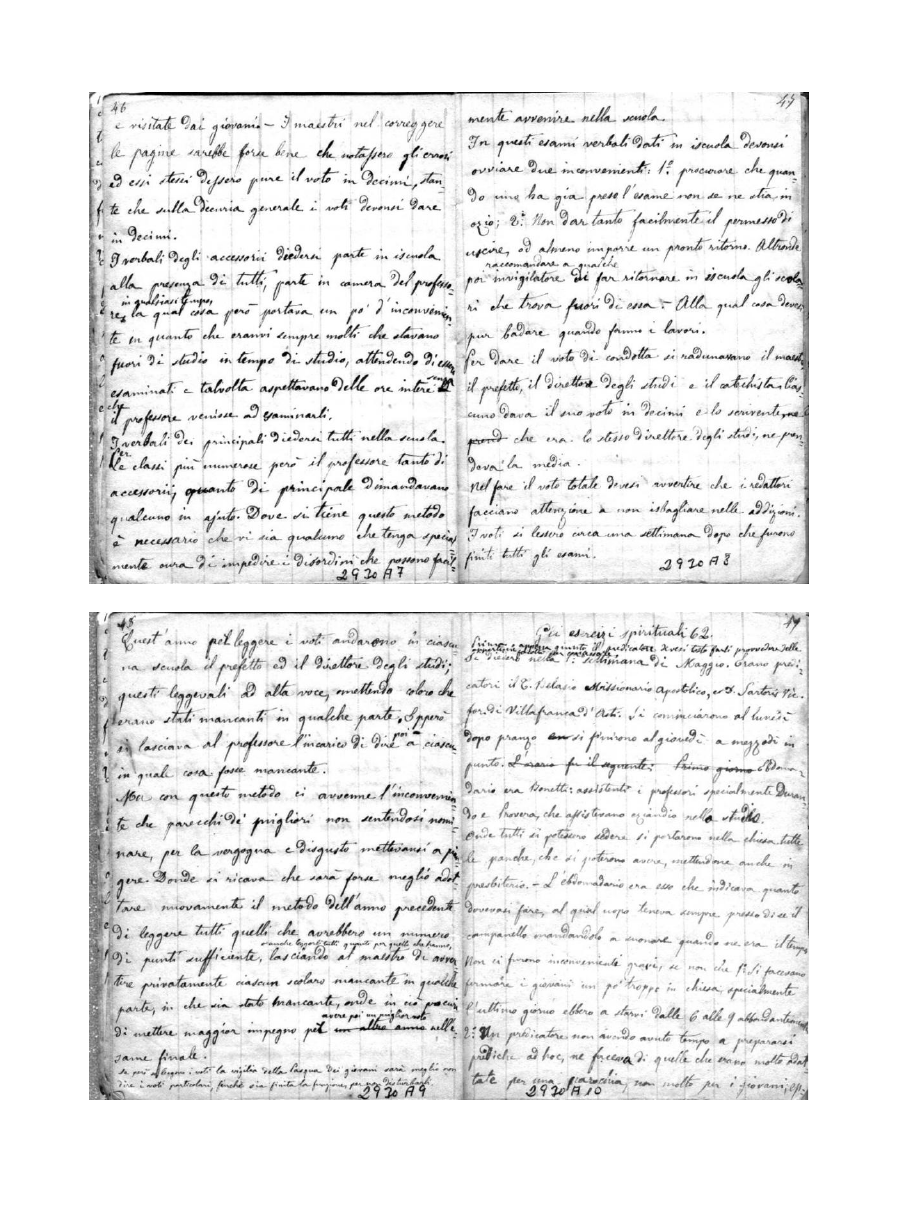 46
e visitate dai giovani – I maestri nel correggere
le pagine sarebbe forse bene che notassero gli errori
ed essi stessi dessero pure il voto in decimi, stan-
te che sulla decuria generale i voti devonsi dare
in decimi.
I verbali degli accessorii diedersi parte in iscuola
alla presenza di tutti, parte in camera del professo-
in qualsiasi tempo,
re, la qual cosa però portava un po' d'inconvenien-
te in quanto che eranvi sempre molti che stavano
fuori di studio in tempo di studio, attendendo d'esser
esaminati e talvolta aspettavano delle ore intere senza
che
il professore venisse ad esaminarli.
I verbali dei principali diedersi tutti nella scuola.
Per
le classi più numerose però il professore tanto di
accessorii, quanto di principale dimandavano
qualcuno in ajuto. Dove si tiene questo metodo
è necessario che vi sia qualcuno che tenga special-
mente cura d'impedire i disordini che possono facil-
2920 A7
47
mente avvenire nella scuola.
In questi esami verbali dati in iscuola devonsi
ovviare due inconvenienti: 1.° procurare che quan-
do uno ha già preso l'esame non se ne stia in
ozio; 2.° Non dar tanto facilmente il permesso di
uscire, od almeno imporre un pronto ritorno. Altronde
raccomandare a qualche
poi invigilatore di far ritornare in iscuola gli scola-
ri che trova fuori di essa. Alla qual cosa devesi
pur badare quando fanno i lavori.
Per dare il voto di condotta si radunavano il maest.
il prefetto, il direttore degli studi e il catechista. Cias-
cuno dava il suo voto in decimi e lo scrivente, ne
prend che era lo stesso direttore degli studi, ne pren-
deva la media.
Nel fare il voto totale devesi avvertire che i redattori
facciano attenzione a non isbagliare nelle addizioni.
I voti si lessero circa una settimana dopo che furono
finiti tutti gli esami.
2920 A8
48
Quest'anno pel leggere i voti andarono in ciascu-
na scuola il prefetto ed il direttore degli studi;
questi leggevali ad alta voce, omettendo coloro che
erano stati mancanti in qualche parte. Epperò
poi
si lasciava al professore l'incarico di dire a ciascu
in qual cosa fosse mancante.
Ma con questo metodo ci avvenne l'inconvenien-
te che parecchi de' migliori non sentendosi nomi-
nare, per la vergogna e disgusto mettevansi a pian-
gere. Donde si ricava che sarà forse meglio adot-
tare nuovamente il metodo dell'anno precedente
di leggere tutti quelli che avrebbero un numero
o anche leggerli tutti quanti per quelli che hanno,
di punti sufficiente, lasciando al maestro di avver-
tire privatamente ciascun scolaro mancante in qualche
parte, in che sia stato mancante, onde in ciò procuri
avere poi un miglior voto
di mettere maggior impegno pel un altro anno nelle-
same finale.
se poi si leggono i voti la vigilia della Pasqua dei giovani sarà meglio non
dire i voti particolari, finché sia finita la funzione, per non disturbarli.
2920 A9
49
Gli esercizi spirituali 62.
il predicatore devesi tosto farsi provvedere delle
Si diedero nella 1.a settimana di Maggio. Erano predi-
catori il T. Belasio Missionario Apostolico, e D. Sartoris Vic.
for. di Villafranca d'Asti. Si cominciarono al lunedì
dopo pranzo en si finirono al giovedì a mezzodì in
punto. L'orario fu il seguente: Primo giorno Ebdoma-
dario era Bonetti: assistenti i professori specialmente Duran-
do e Provera, che assistevano eziandio nello studio.
Onde tutti si potessero sedere si portarono nella chiesa tutte
le panche, che si poterono avere, mettendone anche in
presbiterio. – L'ebdomadario era esso che indicava quanto
dovevasi fare, al qual uopo teneva sempre presso di se il
campanello mandandolo a suonare quando ne era il tempo
Non ci furono inconvenienti gravi, se non che 1.° Si facevano
fermare i giovani un po' troppo in chiesa, specialmente
l'ultimo giorno ebbero a starvi dalle 6 alle 9 abbondantemente
2.° Un predicatore non avendo avuto tempo a prepararsi
prediche ad hoc, ne faceva di quelle che erano molto adat-
tate per una parochia, non molto per i giovani; esp-
2920 A10